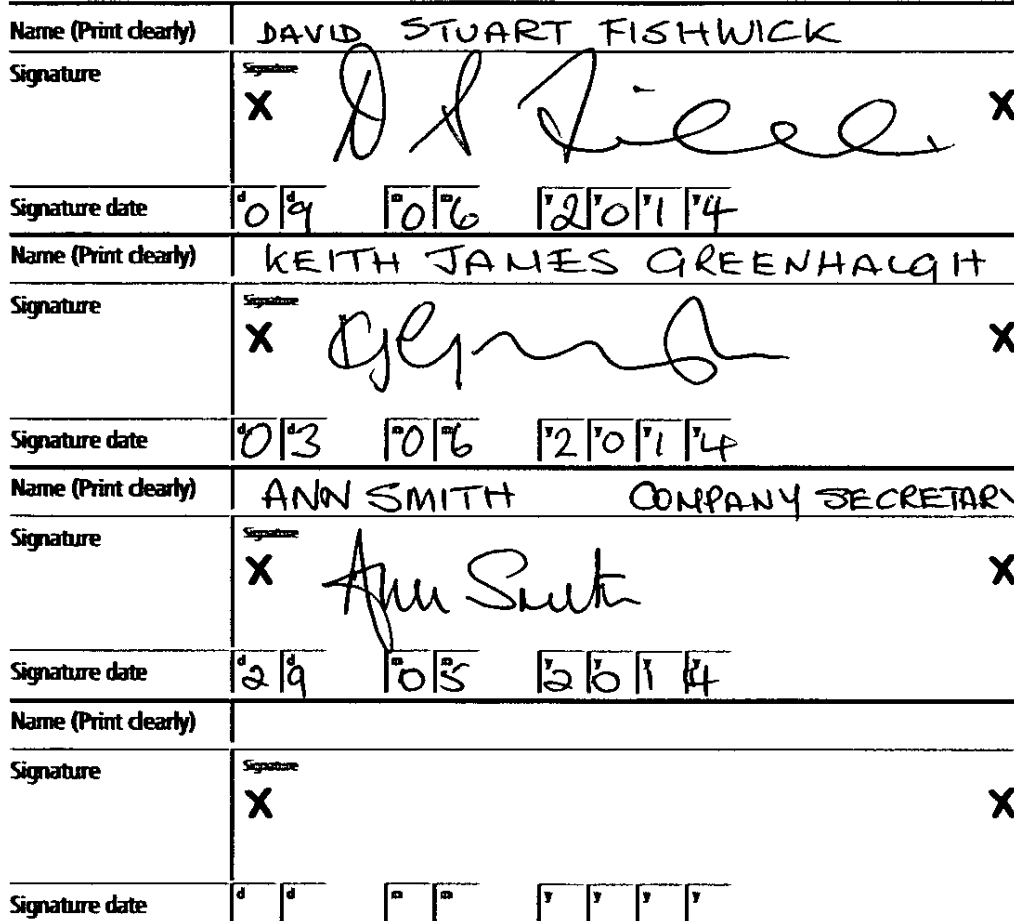 Name (Print clearly) DAVID STUART FISHWICK
Signature Signature
X X
Signature date d0 d9 m0 m6 y2 y0 y1 y4
Name (Print clearly) KEITH JAMES GREENHALGH
Signature Signature
X X
Signature date d0 d3 m0 m6 y2 y0 y1 y4
Name (Print clearly) ANN SMITH COMPANY SECRETARY
Signature Signature
X Ann Smith X
Signature date d2 d9 m0 m5 y2 y0 y1 y4
Name (Print clearly)
Signature Signature
X X
Signature date d d m m y y y y